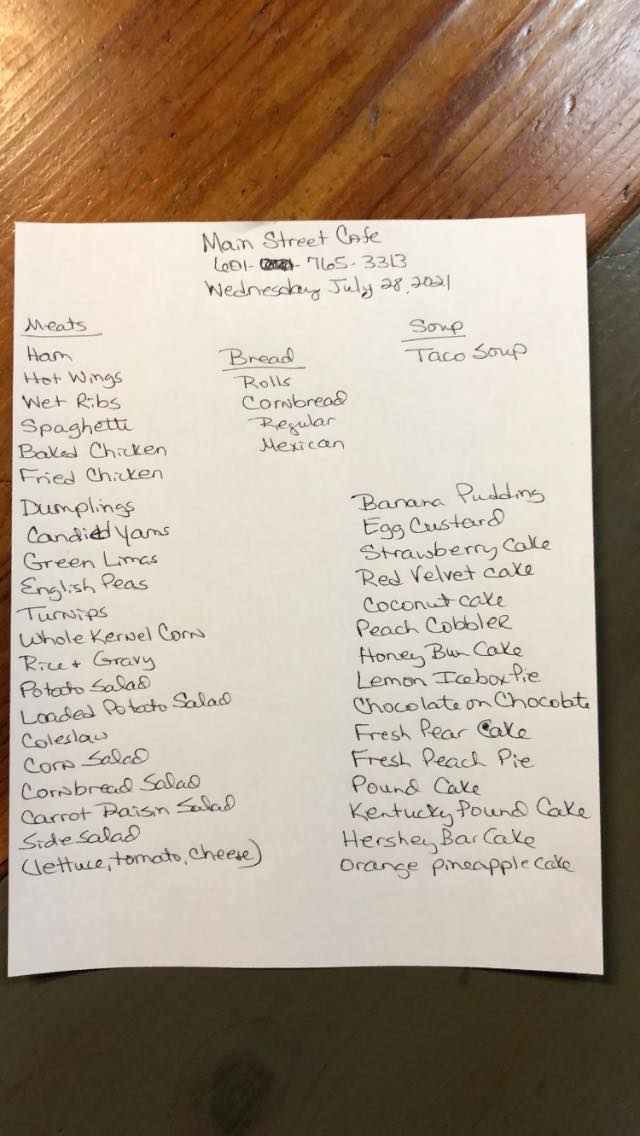 Main Street Cafe
601- 765-3313
Wednesday July 28, 2021
Meats
Ham
Hot Wings
Wet Ribs
Spaghetti
Baked Chicken
Fried Chicken
Bread
Rolls
Cornbread
Regular
Mexican
Soup
Taco Soup
Dumplings
Candied Yams
Green Limas
English Peas
Turnips
Whole Kernel Corn
Rice + Gravy
Potato Salad
Loaded Potato Salad
Coleslaw
Corn Salad
Cornbread Salad
Carrot Raisin Salad
Side Salad
(lettuce, tomato, cheese)
Banana Pudding
Egg Custard
Strawberry Cake
Red Velvet cake
Coconut cake
Peach Cobbler
Honey Bun Cake
Lemon Icebox Pie
Chocolate on Chocolate
Fresh Pear Cake
Fresh Peach Pie
Pound Cake
Kentucky Pound Cake
Hershey Bar Cake
Orange pineapple cake